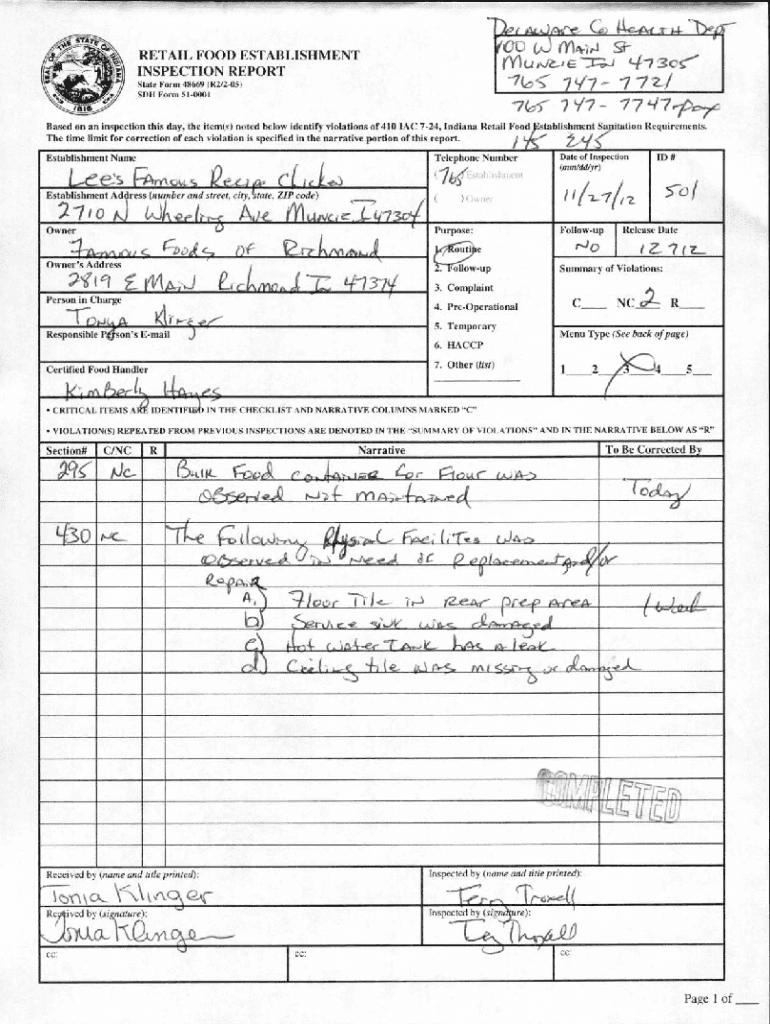 DELAWARE Co HEALTH Dept
100 W MAIN St
MUNCIE IN 47305
765 747-7721
765 747-7747-fax
RETAIL FOOD ESTABLISHMENT
INSPECTION REPORT
State Form 48669 (R2/2-05)
SDH Form 51-0001
Based on an inspection this day, the item(s) noted below identify violations of 410 IAC 7-24, Indiana Retail Food Establishment Sanitation Requirements.
The time limit for correction of each violation is specified in the narrative portion of this report.
145 245
Establishment Name
Lee's Famous Recipe Chicken
Telephone Number
(765) Establishment
( ) Owner
Date of Inspection
(mm/dd/yr)
11/27/12
ID #
501
Establishment Address (number and street, city, state, ZIP code)
2710 N Wheeling Ave Muncie I 47304
Owner
Famous Foods OF Richmond
Purpose:
1. Routine
2. Follow-up
3. Complaint
4. Pre-Operational
5. Temporary
6. HACCP
7. Other (list)
Follow-up
NO
Release Date
12 7 12
Owner's Address
2819 E MAIN Richmond In 47374
Summary of Violations:
C NC 2 R
Person in Charge
Tonya Klinger
Responsible Person's E-mail
Menu Type (See back of page)
1 2 3 4 5
Certified Food Handler
Kimberly Hayes
• CRITICAL ITEMS ARE IDENTIFIED IN THE CHECKLIST AND NARRATIVE COLUMNS MARKED "C"
• VIOLATION(S) REPEATED FROM PREVIOUS INSPECTIONS ARE DENOTED IN THE "SUMMARY OF VIOLATIONS" AND IN THE NARRATIVE BELOW AS "R"
Section# C/NC R Narrative To Be Corrected By
295 NC Bulk Food container for Flour was
Observed Not Maintained Today
430 NC The Following Physical Facilites was
Observed in Need of Replacement and/or
Repair
A.) Floor Tile in rear prep area 1 Week
b) Service sink was damaged
c) Hot water TANK has a leak
d) Ceiling tile was missing or damaged
COMPLETED
Received by (name and title printed):
Tonia Klinger
Inspected by (name and title printed):
Terry Troxell
Received by (signature):
Tonia Klinger
Inspected by (signature):
cc: cc: cc:
Page 1 of